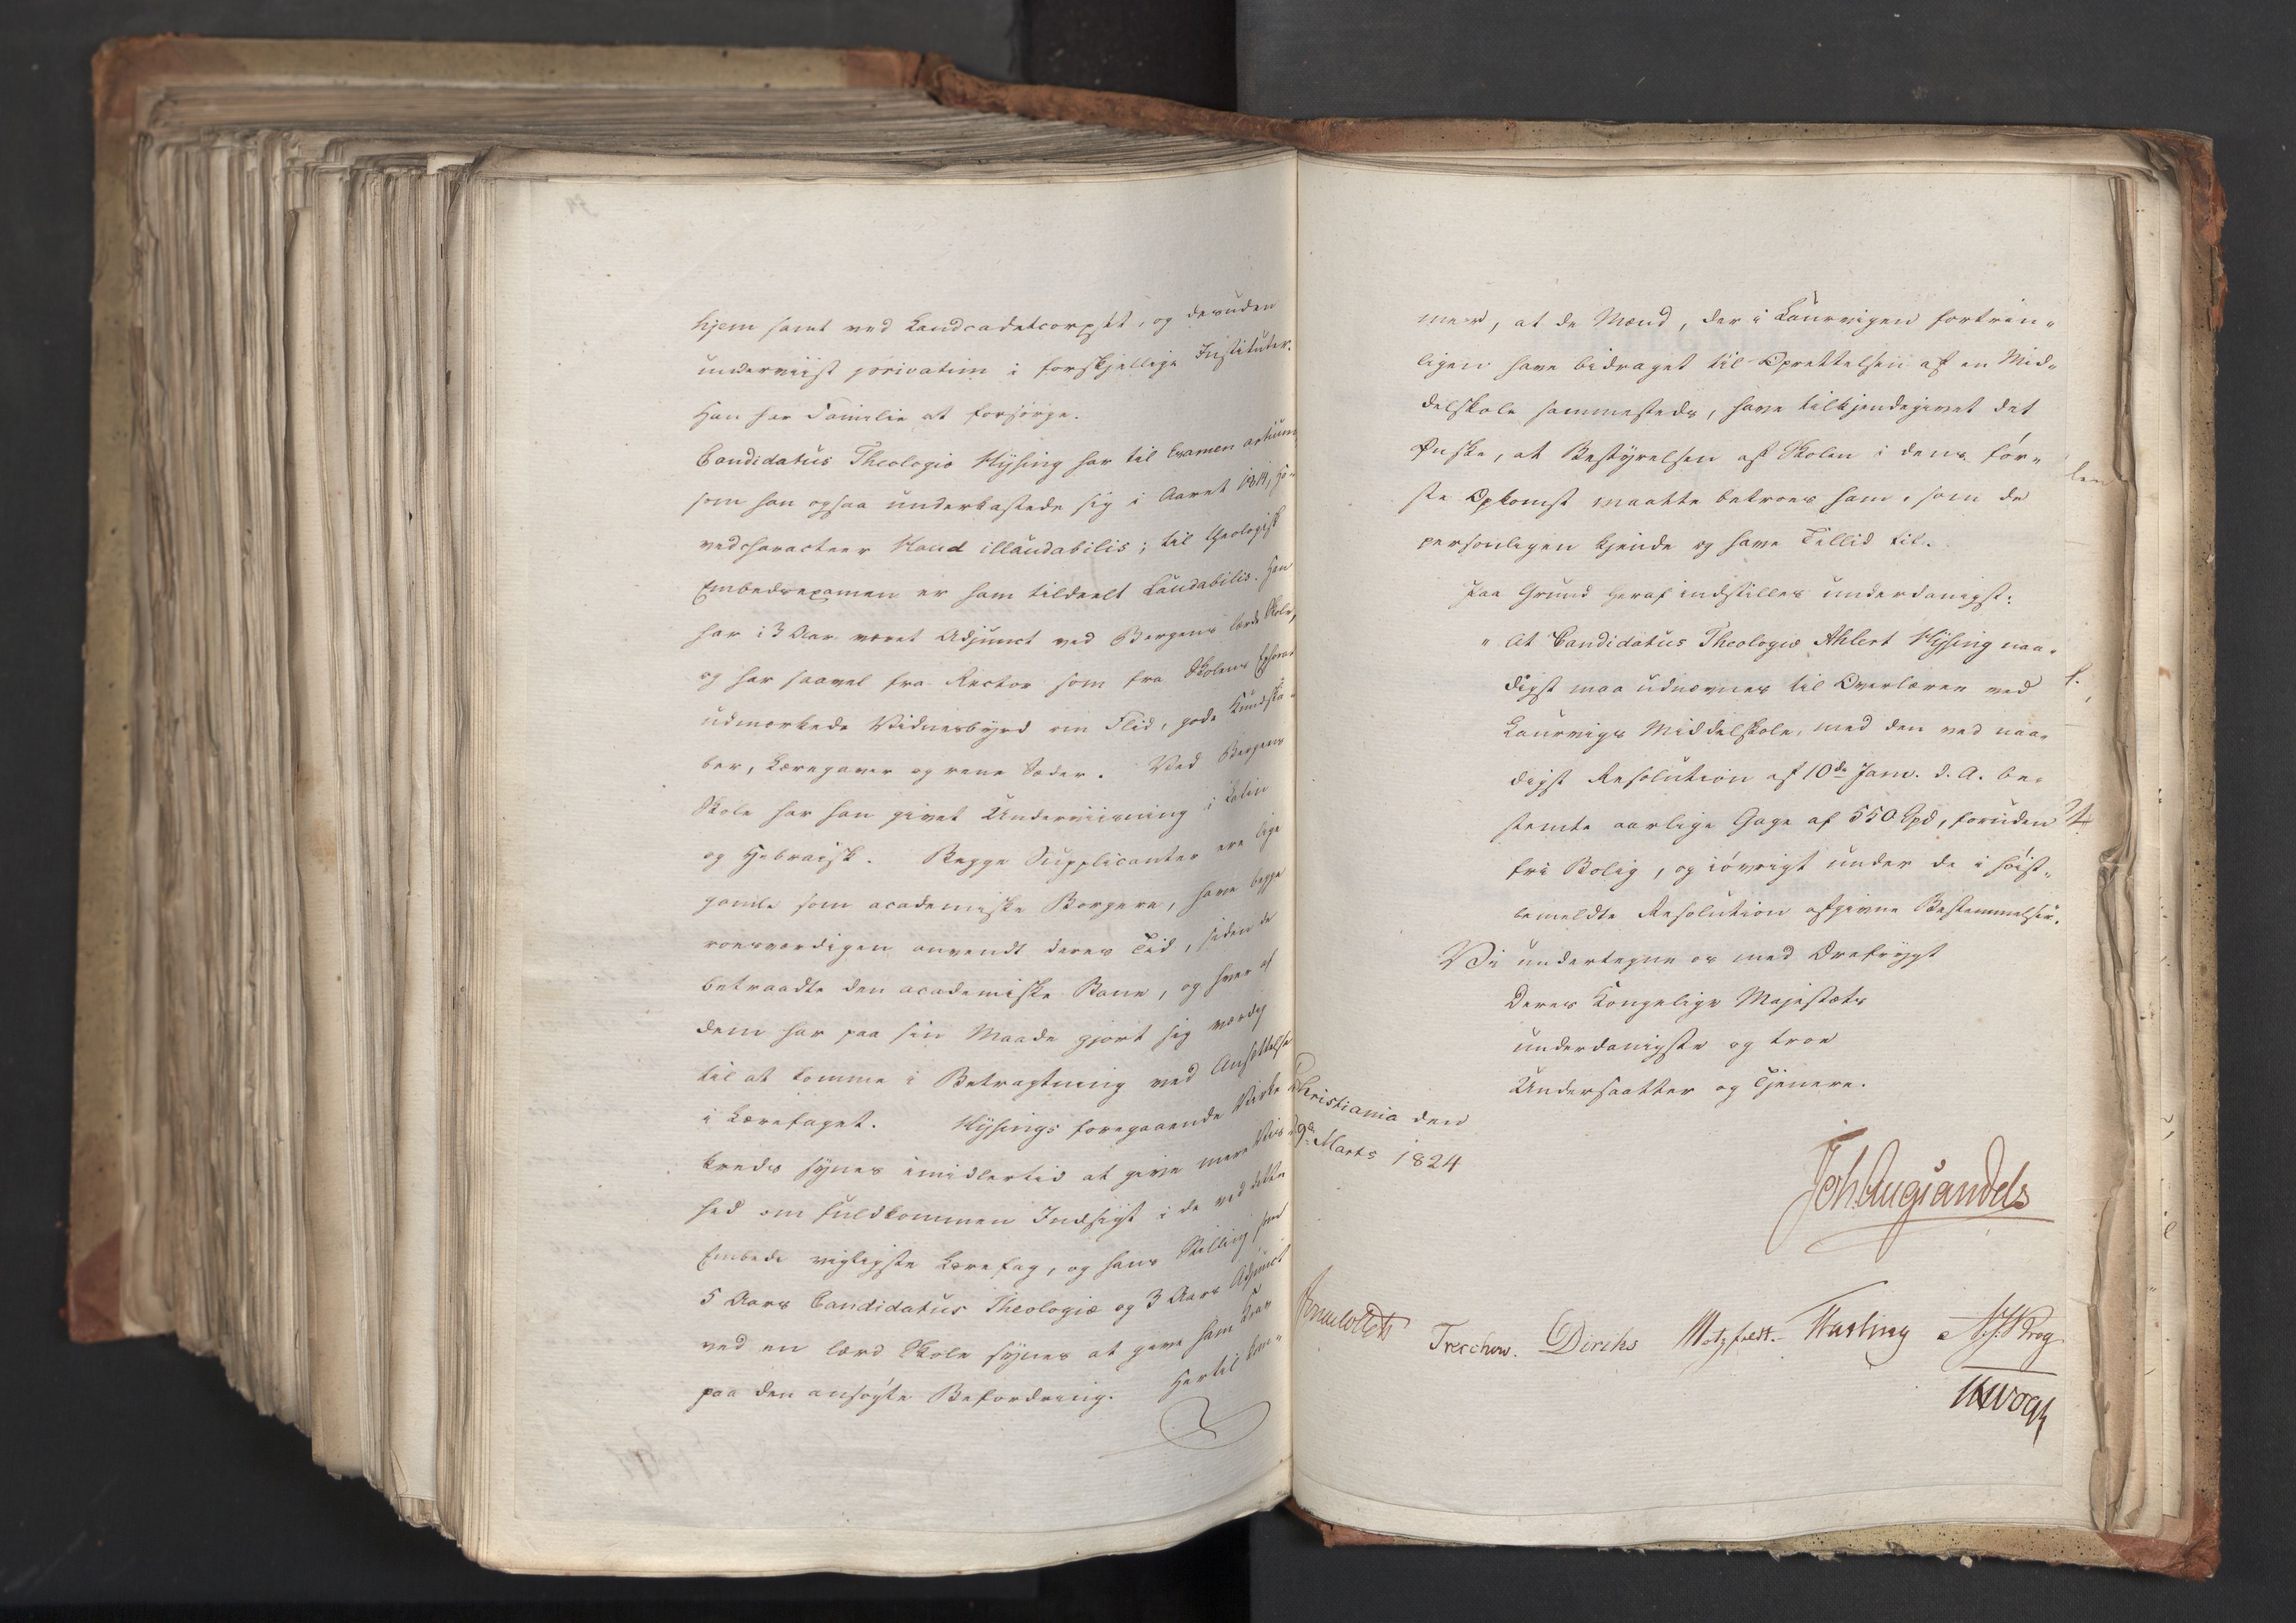 hjem samt ved Landcadetcorpset, og desuden
underviist privatim i forskjellige Instituter.
Han har Familie at forsørge.
Candidatus Theologiæ Hysing har til Examen artium,
som han ogsaa underkastede sig i Aaret 1814, Ho-
vedcharacteer Haud illaudabilis; til theologisk
Embedsexamen er ham tildeelt Laudabilis. Han
har i 3 Aar været Adjunct ved Bergens lærde Skole,
og har saavel fra Rector som fra Skolens Ephorat
udmærkede Vidnesbyrd om Flid, gode Kundska-
ber, Læregaver og rene Sæder. Ved Bergens
Skole har han givet Underviisning i Latin
og Hebraisk. Begge Supplicanter ere lige
gamle som academiske Borgere, have begge
roesværdigen anvendt deres Tid, siden de
betraadte den academiske Bane, og hver af
dem har paa sin Maade gjort sig værdig
til at komme i Betragtning ved Ansættelse
i Lærefaget. Hysings foregaaende Virke-
kreds synes imidlertid at give mere Vis-
hed om fuldkommen Indsigt i de ved dette
Embede vigtigste Lærefag, og hans Stilling som
5 Aars Candidatus Theologiæ og 3 Aars Adjunct
ved en lærd Skole synes at give ham Krav
paa den ansøgte Befordring. Hertil kom-
mer, at de Mænd, der i Laurvigen fortrin-
ligen have bidraget til Oprettelsen af en Mid-
delskole sammesteds, have tilkjendegivet det
Ønske, at Bestyrelsen af Skolen i dens før-
ste Opkomst maatte betroes ham, som de
personligen kjende og have Tillid til.
Paa Grund heraf indstilles underdanigst:
" At Candidatus Theologiæ Ahlert Hysing naa-
digst maa udnævnes til Overlærer ved
Laurvigs Middelskole, med den ved naa-
digst Resolution af 10de Janv. d. A. be-
stemte aarlige Gage af 550 Spd, foruden
fri Bolig, og iøvrigt under de i høist-
bemeldte Resolution afgivne Bestemmelser.
Vi undertegne os med Ærefrygt
Deres Kongelige Majestæts
underdanigste og troe
Undersaatter og Tjenere.
Christiania den
9de Marts 1824
Joh. Aug. Sandels
Sommerhielm Treschow. Diriks Motzfeldt. Fasting N. J. Krog